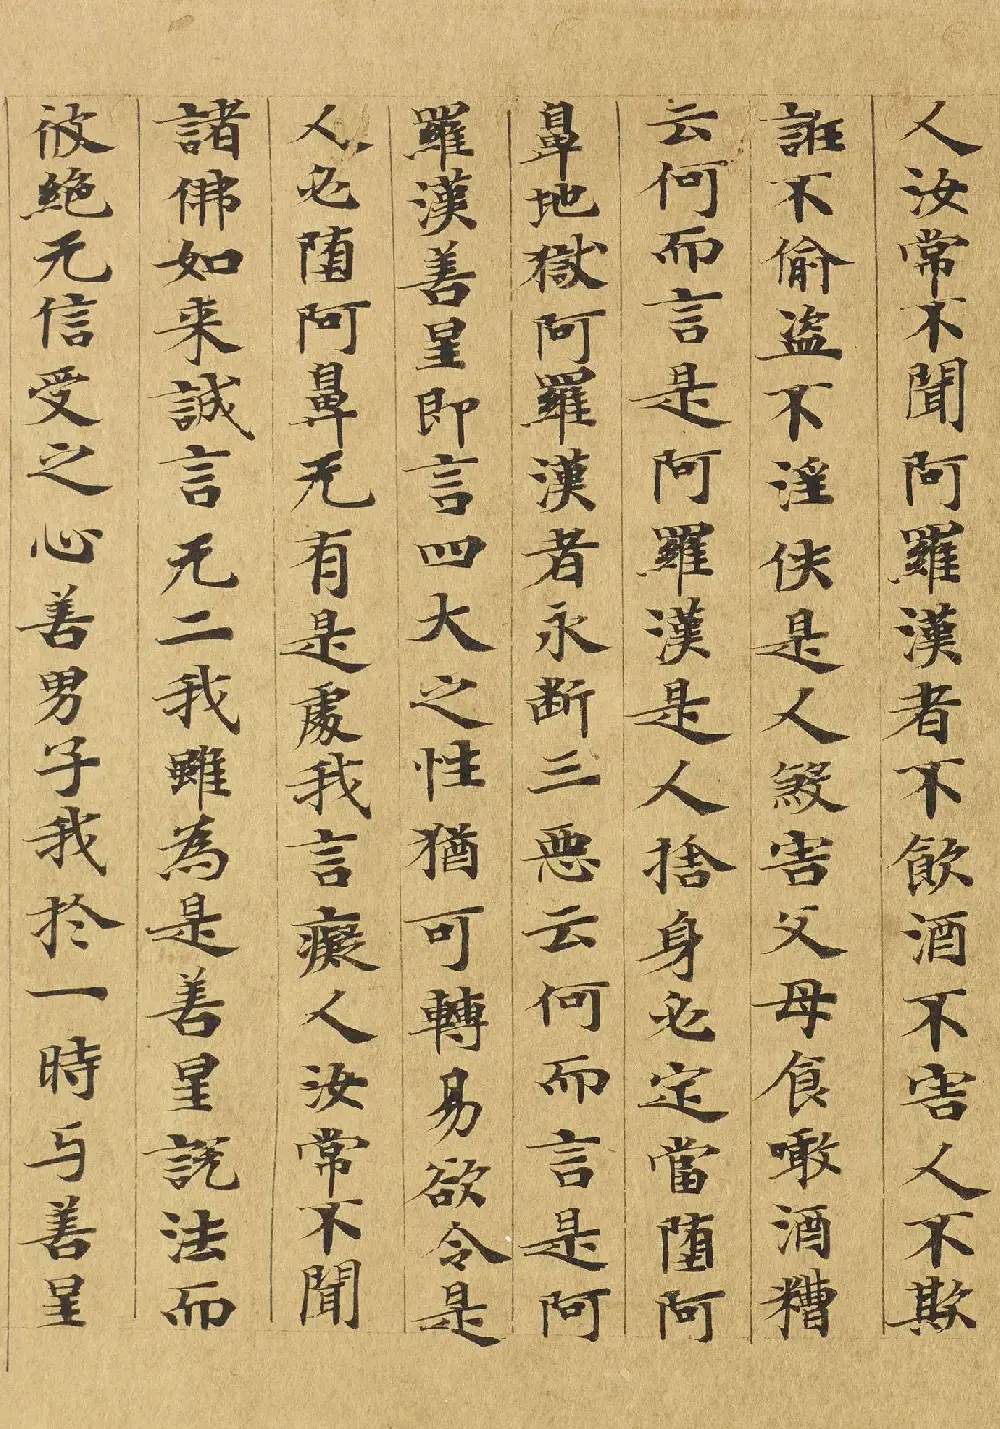 人汝常不聞阿羅漢者不飲酒不害人不欺
誑不偷盗不淫佚是人煞害父母食噉酒糟
云何而言是阿羅漢是人捨身必定當堕阿
鼻地獄阿羅漢者永断三惡云何而言是阿
羅漢善星即言四大之性猶可轉易欲令是
人必堕阿鼻无有是處我言癡人汝常不聞
諸佛如来誠言无二我雖為是善星說法而
彼絕无信受之心善男子我於一時与善星